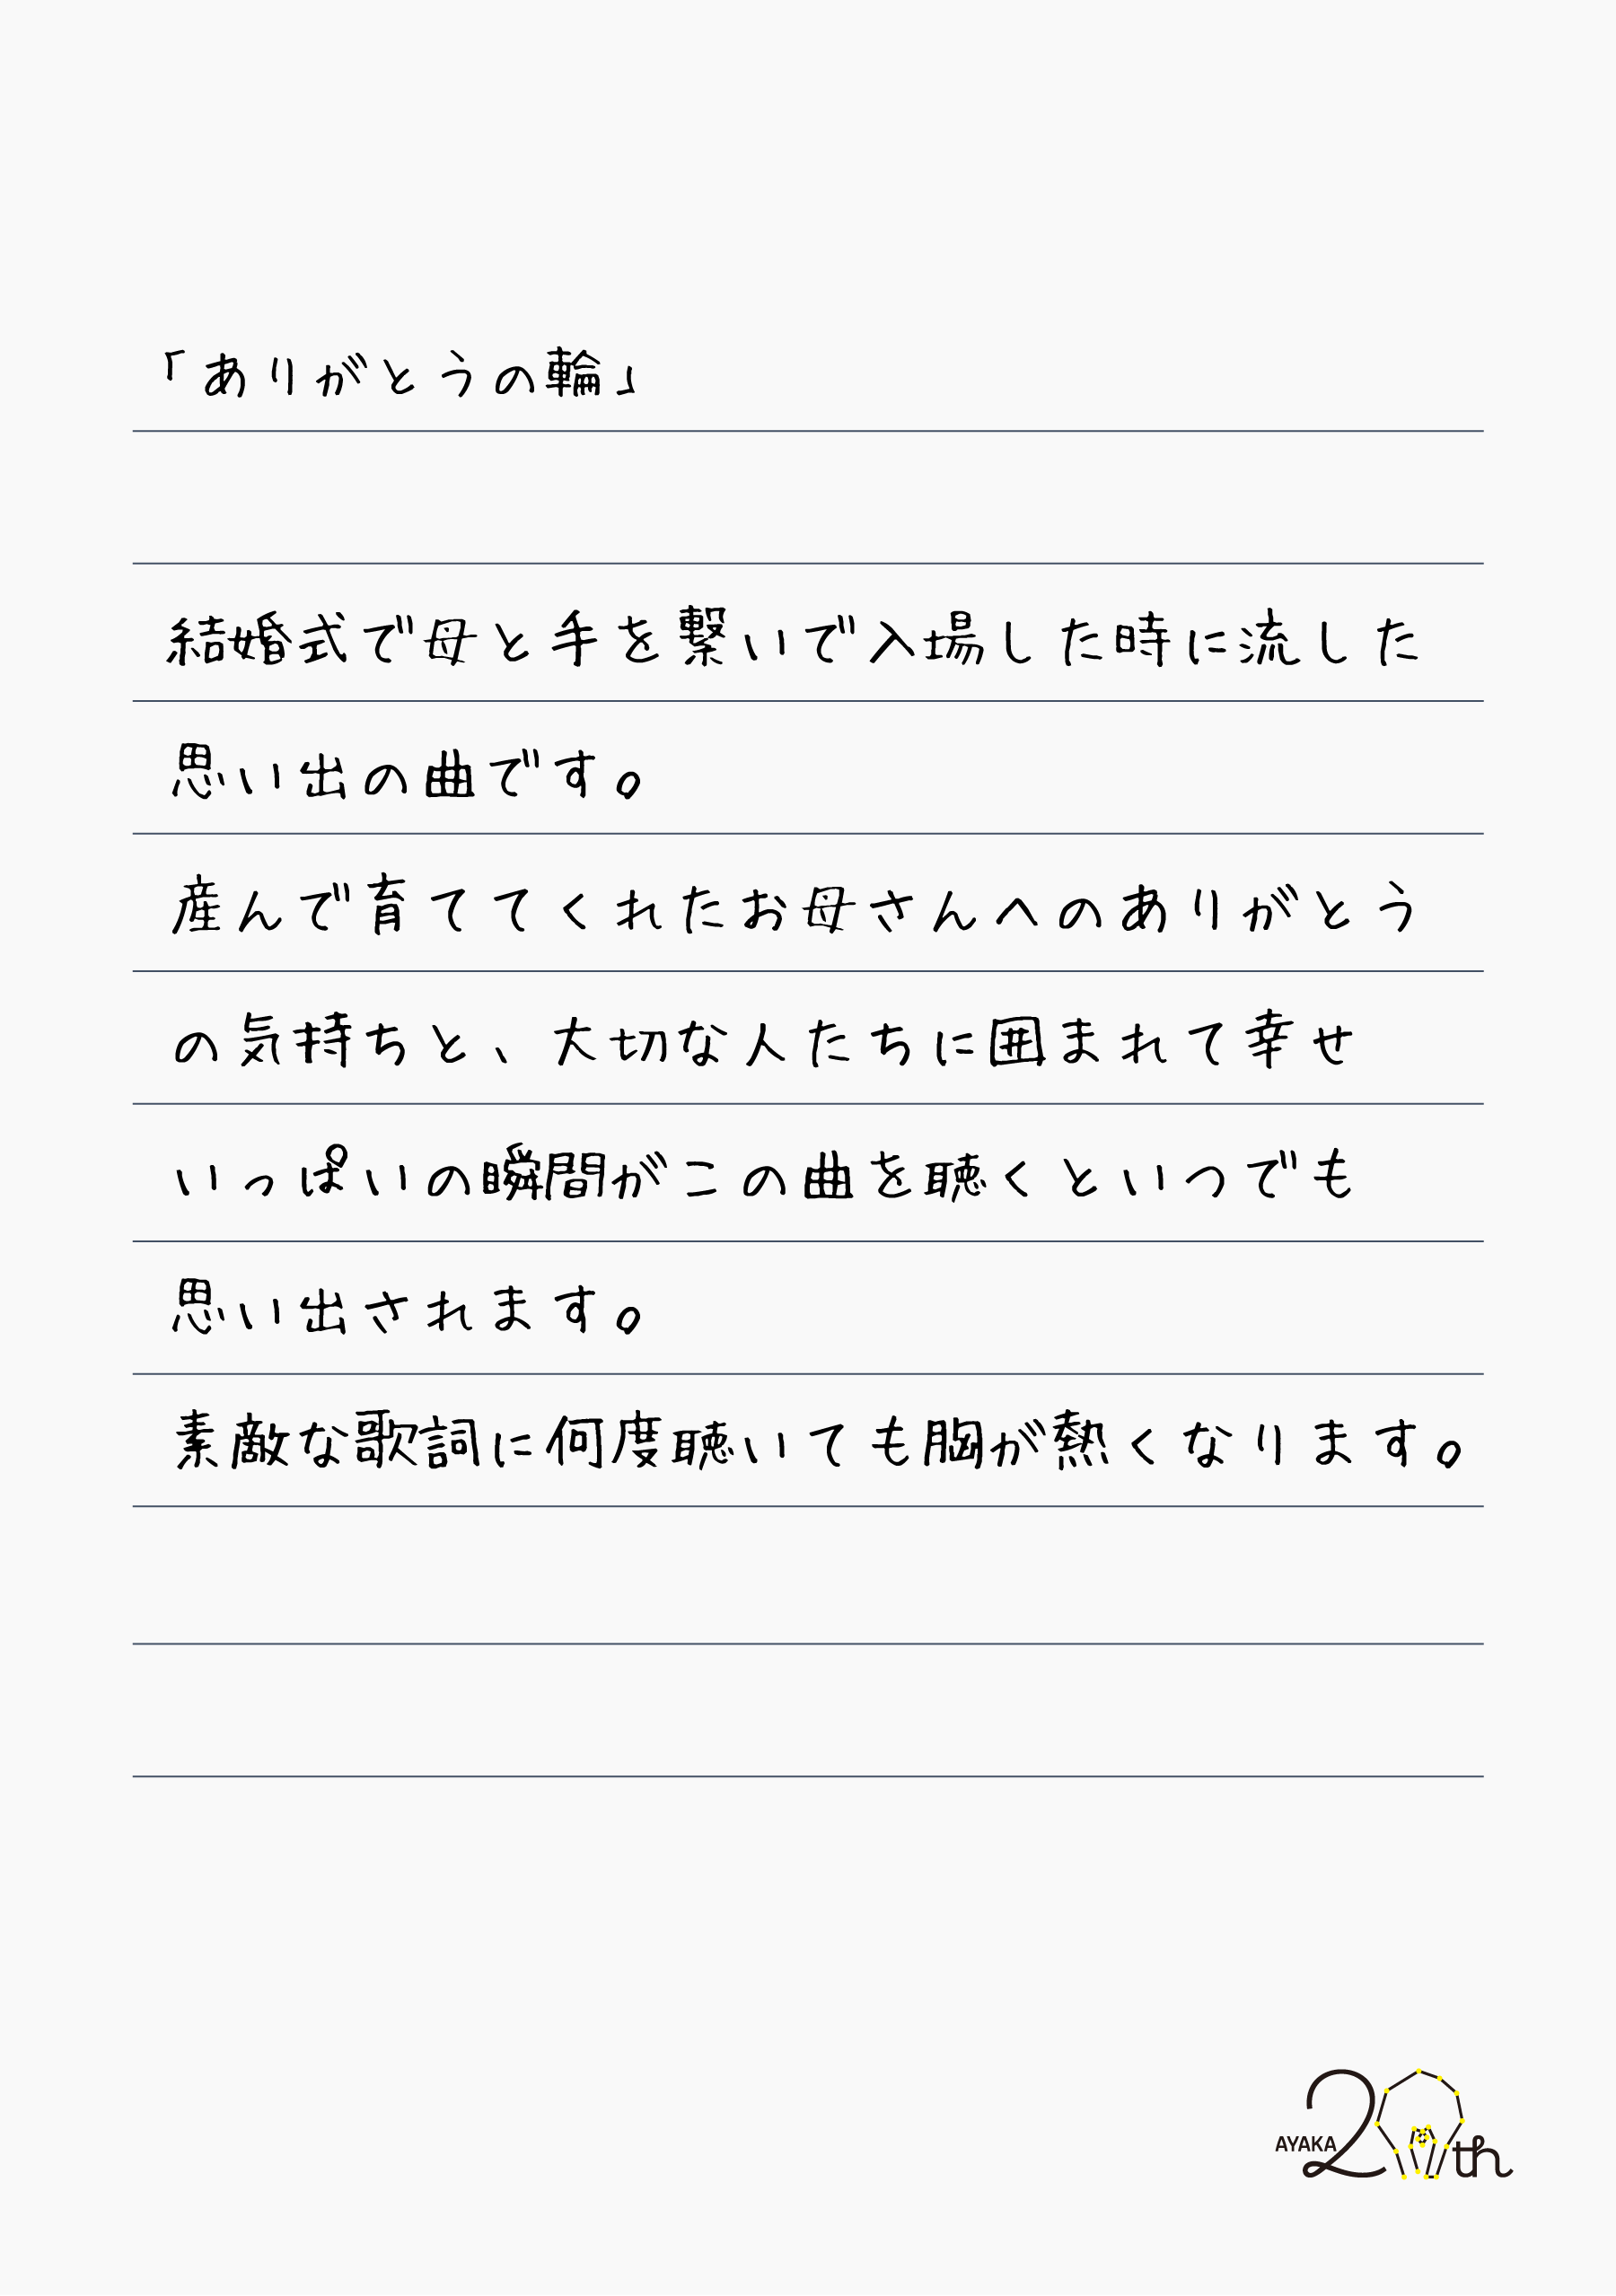 「ありがとうの輪」
結婚式で母と手を繋いで入場した時に流した
思い出の曲です。
産んで育ててくれたお母さんへのありがとう
の気持ちと、大切な人たちに囲まれて幸せ
いっぱいの瞬間がこの曲を聴くといつでも
思い出されます。
素敵な歌詞に何度聴いても胸が熱くなります。
AYAKA 20th